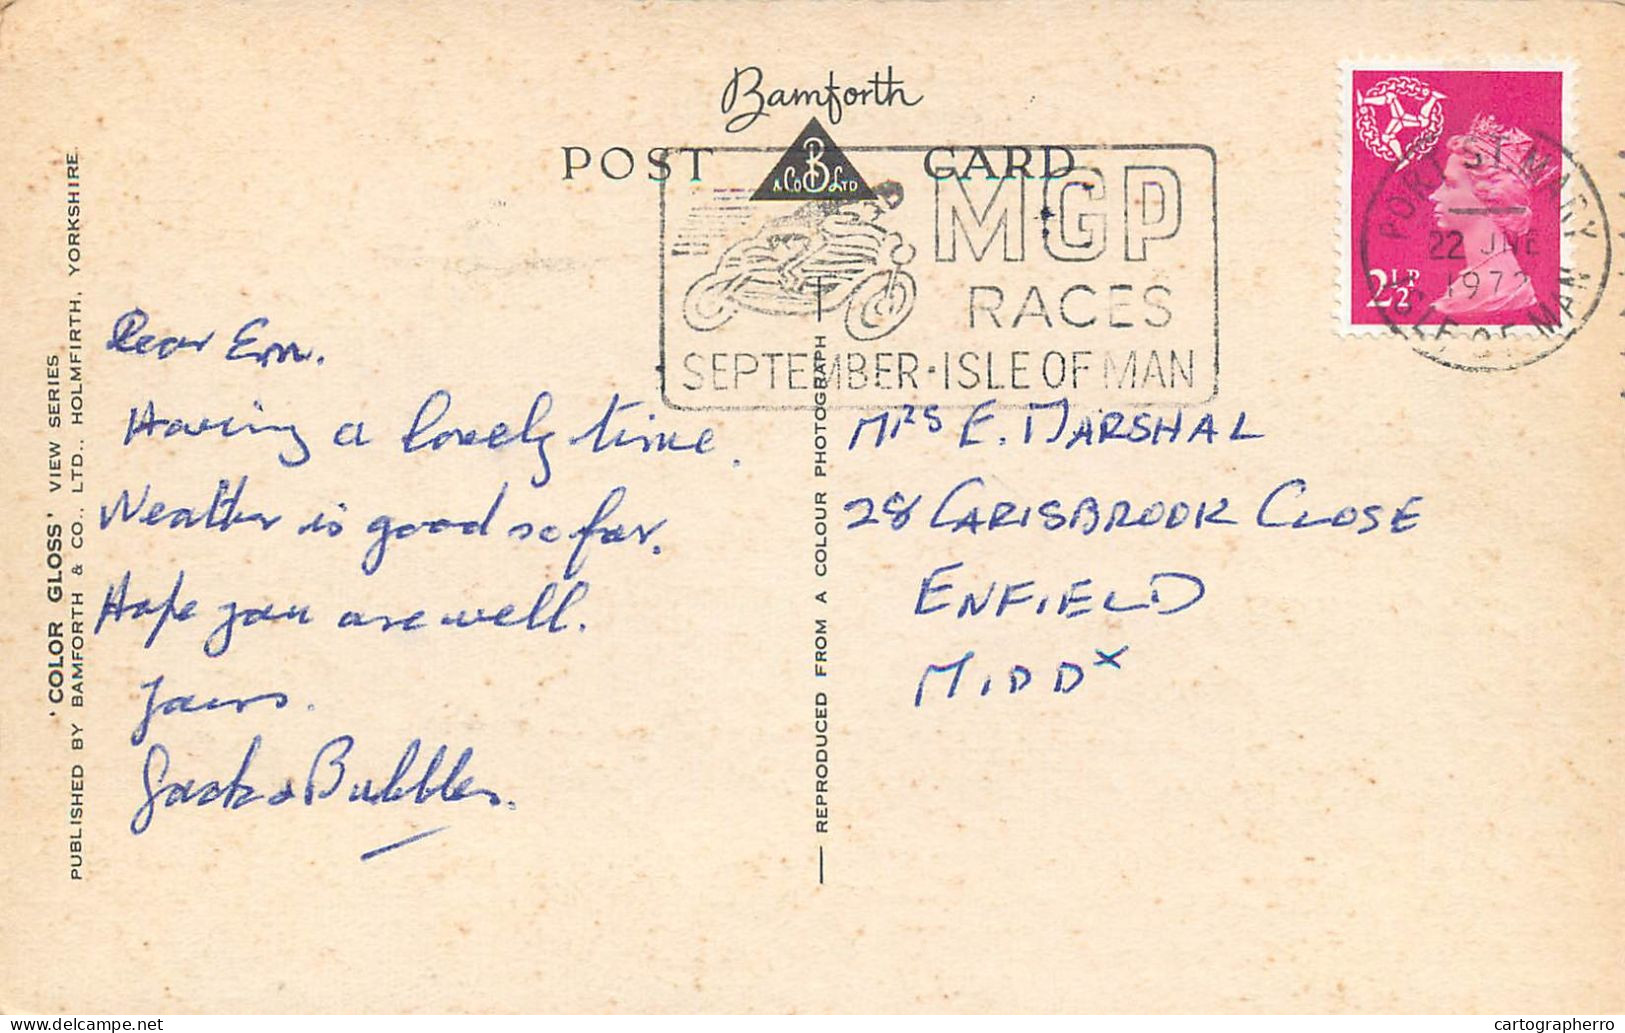 Bamforth
POST CARD
B
& Co Ltd
MGP
RACES
SEPTEMBER · ISLE OF MAN
PORT ST MARY
22 JNE
1972
ISLE OF MAN
2½P
Dear Em.
Having a lovely time.
Weather is good so far.
Hope you are well.
Yours.
Jack & Bubbles.
MRS E. MARSHAL
28 CARISBROOK CLOSE
ENFIELD
MIDDX
'COLOR GLOSS' VIEW SERIES
PUBLISHED BY BAMFORTH & CO., LTD., HOLMFIRTH, YORKSHIRE.
REPRODUCED FROM A COLOUR PHOTOGRAPH
cartographerro